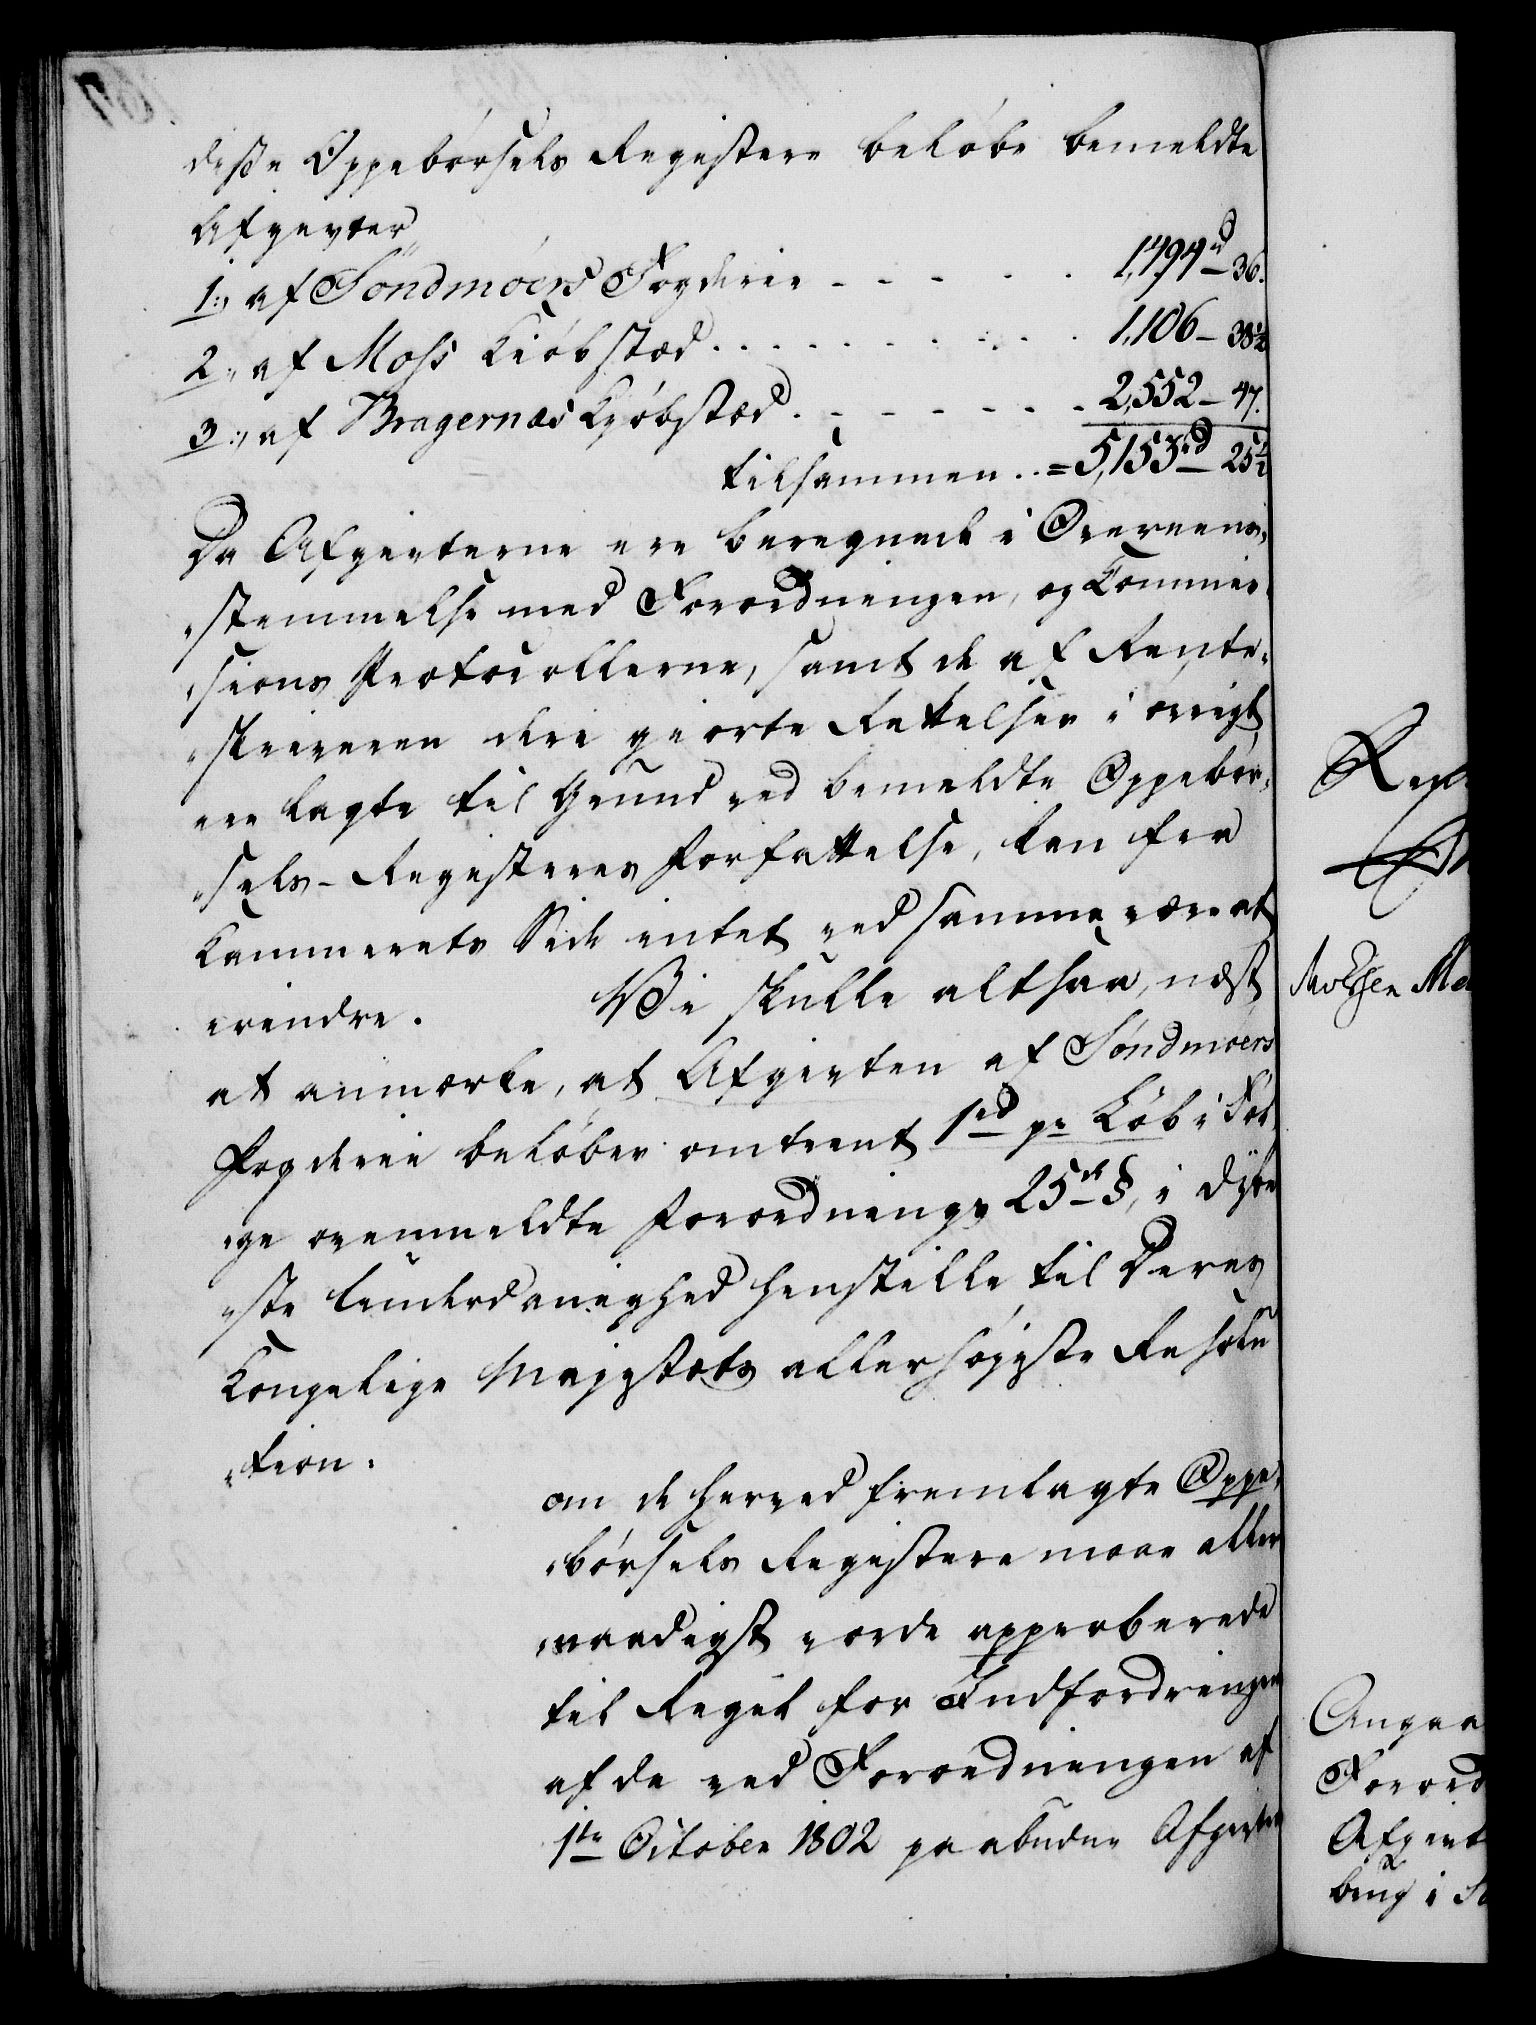 disse Oppebørsels Registere beløbe bemeldte
Afgivter
1:, af Søndmøers Fogderie - - - - - 1,494rd - 36.
2:, af Moss Kiøbstæd . . . . . . . . . 1,106 - 38½
3:, af Bragernæs Kjøbstæd . - - - - - - 2,552 - 47.
tilsammen . . = 5,153rd - 25½
Da Afgivterne ere beregnede i Overeens,
,stemmelse med Forordningen, og Commis,
,sions Protocollerne, samt de af Rente,
,skriveren deri giorte Rettelser i øvrigt
ere lagte til Grund ved bemeldte Oppebør,
,sels-Registeres Forfattelse, kan fra
Kammerets Side intet ved samme være at
erindre. Vi skulle altsaa, næst
at anmærke, at Afgivten af Søndmøers
Fogderie beløber omtrent 1rd pr Løb i Føl,
,ge ovenmeldte Forordnings 25de §, i dybe
,ste Underdanighed henstille til Deres
Kongelige Majestæts allerhøjeste Resolu
,tion.
om de herved fremlagte Oppe,
,børsels Registere maae aller
,naadigst vorde approberede
til Regel for Indfordringen
af de ved Forordningen af
1te October 1802 paabudne Afgivter
Angaa
Forord
Afgivt
brug i